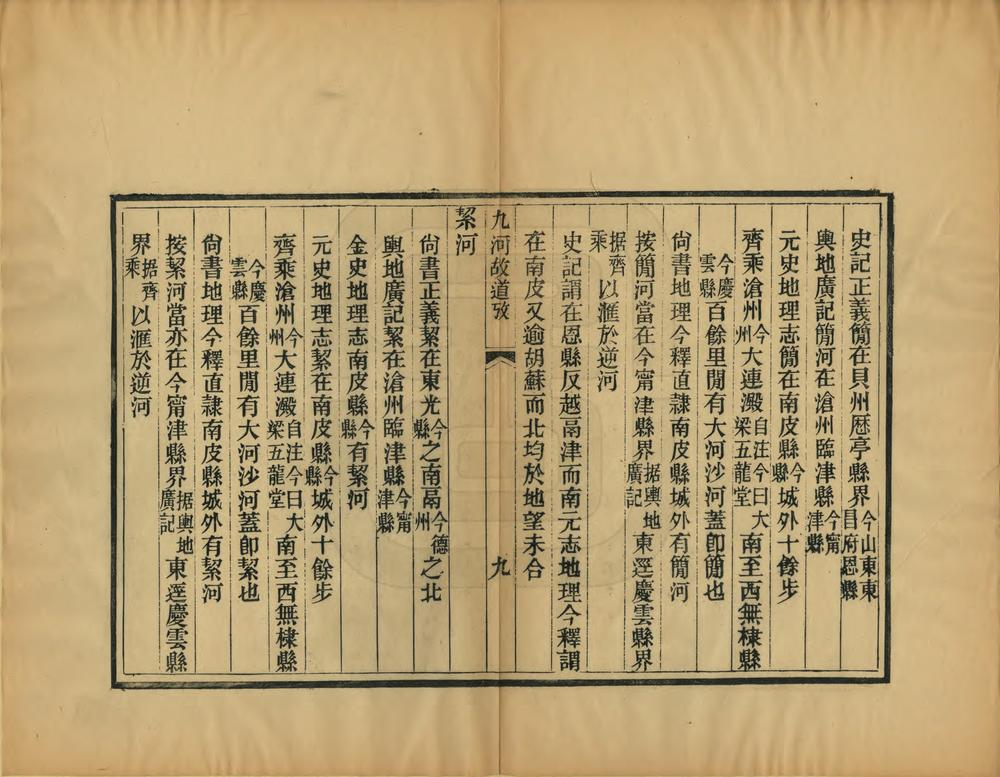 史記正義簡在貝州歷亭縣界今山東東昌府恩縣
輿地廣記簡河在滄州臨津縣今甯津縣
元史地理志簡在南皮縣今縣城外十餘步
齊乘滄州今州大連澱自注今曰大梁五龍堂南至西無棣縣
今慶雲縣百餘里閒有大河沙河蓋卽簡也
尙書地理今釋直隸南皮縣城外有簡河
按簡河當在今甯津縣界据輿地廣記東逕慶雲縣界
据齊乘以滙於逆河
史記謂在恩縣反越鬲津而南元志地理今釋謂
在南皮又逾胡蘇而北均於地望未合
九河故道攷
九
絜河
尙書正義絜在東光今縣之南鬲今德州之北
輿地廣記絜在滄州臨津縣今甯津縣
金史地理志南皮縣今縣有絜河
元史地理志絜在南皮縣今縣城外十餘步
齊乘滄州今州大連澱自注今曰大梁五龍堂南至西無棣縣
今慶雲縣百餘里閒有大河沙河蓋卽絜也
尙書地理今釋直隸南皮縣城外有絜河
按絜河當亦在今甯津縣界据輿地廣記東逕慶雲縣
界据齊乘以滙於逆河